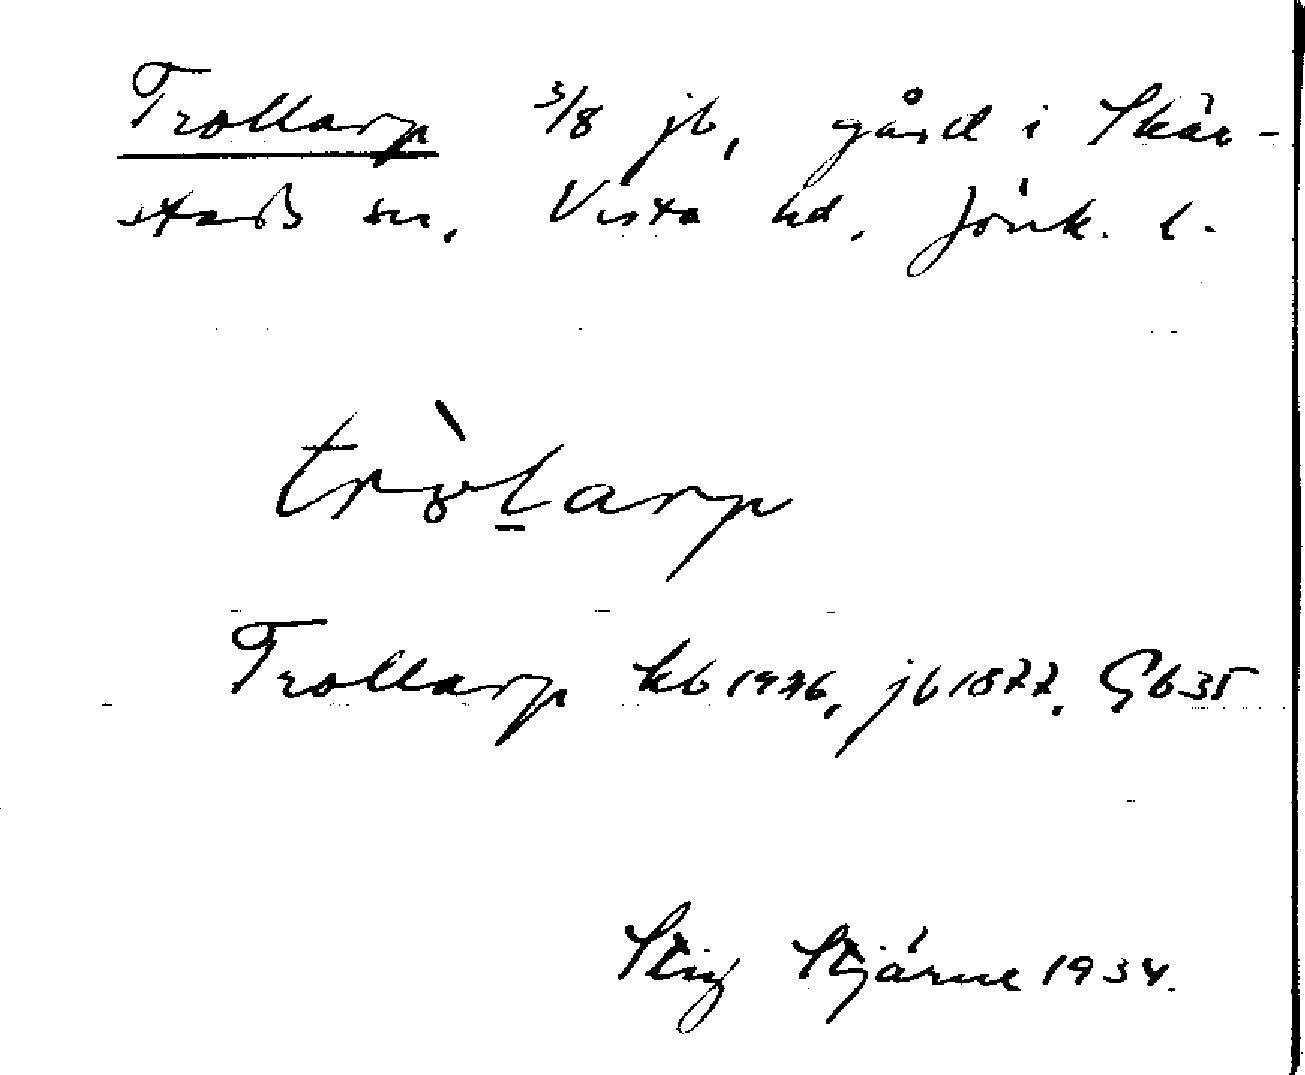 Trollarp 3/8 jb, gård i Skär-
stads sn, Vista hd, Jönk. l.
tròl̠arp
Trollarp kb 1926, jb 1877, Gb 35
Stig Stjärne 1934.